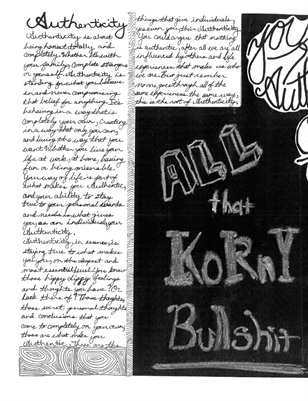 Authenticity
Authenticity is about
being honest totally and
completely. Whether its with
your family, complete strangers
or yourself. Authenticity is
standing for what you believe
in and never compromising
that belief for anything. Its
behaving in a way that is
completely your own. Creating
in a way that only you can,
and living the way that you
want. Whether you live your
life at work, at home, having
fun or being miserable.
Your way of life is part of
what makes you Authentic,
and your ability to stay
true to your personal wants
and needs is what gives
you as an individual your
Authenticity.
Authenticity in essence, is
staying true to what makes
you you on the deepest and
most essential level. You know
those hippy dippy feelings
and thoughts you have? Or
lack there of? Those thoughts,
those secret personal thoughts
and conclusions that you
come to completely on your own,
those are what make you
Authentic. These are the
things that give individuals,
person you their Authenticity.
You could argue that nothing
is authentic, after all we are all
influenced by others and life
experiences that make us who
we are. But just remember
no one goes through all of the
same experiences the same way,
this is the root of Authenticity.
You
ALL
that
KORNY
Bullshit